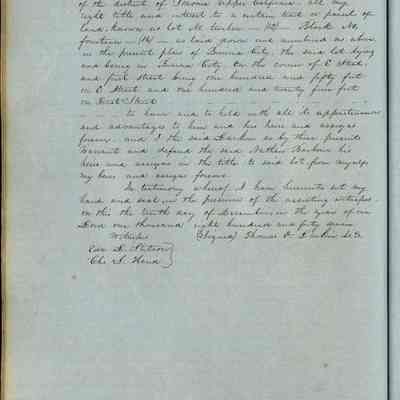 of the district of Sonoma upper California all my
right title and interest to a certain tract or parcel of
land known as lot No twelve — 12 — Block No
fourteen — 14 — as laid down and numbered as above
in the present plan of Benicia City. The said lot lying
and being in Benicia City. On the corner of C Street,
and first Street being one hundred and fifty feet
on C Street and one hundred and twenty five feet
on First Street
to have and to hold with all its appurtenances
and advantages to him and his heirs and assigns
forever. and I the said do by these presents
warrant and defend the said his
heirs and assigns in the title to said lot from myself
my heirs and assigns forever.
In testimony whereof I have hereunto set my
hand and seal in the presence of the assisting witnesses
on this the tenth day of December in the year of our
Lord one thousand eight hundred and forty seven
Witness (Signed) Thomas